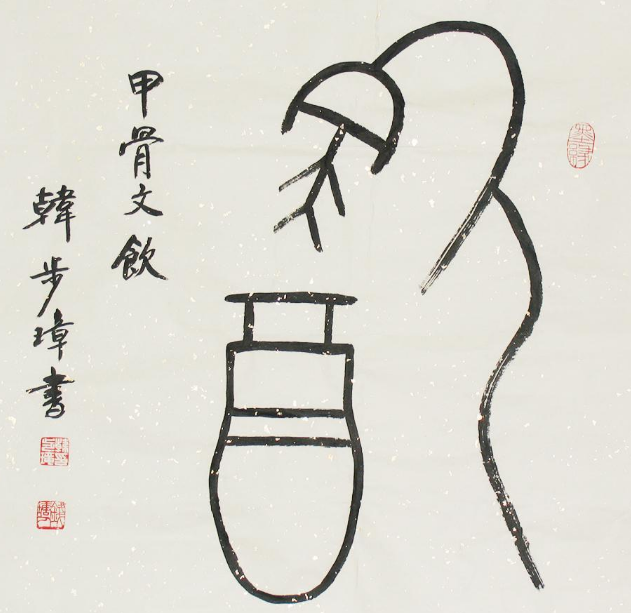 飲
甲骨文飲
韓步璋書